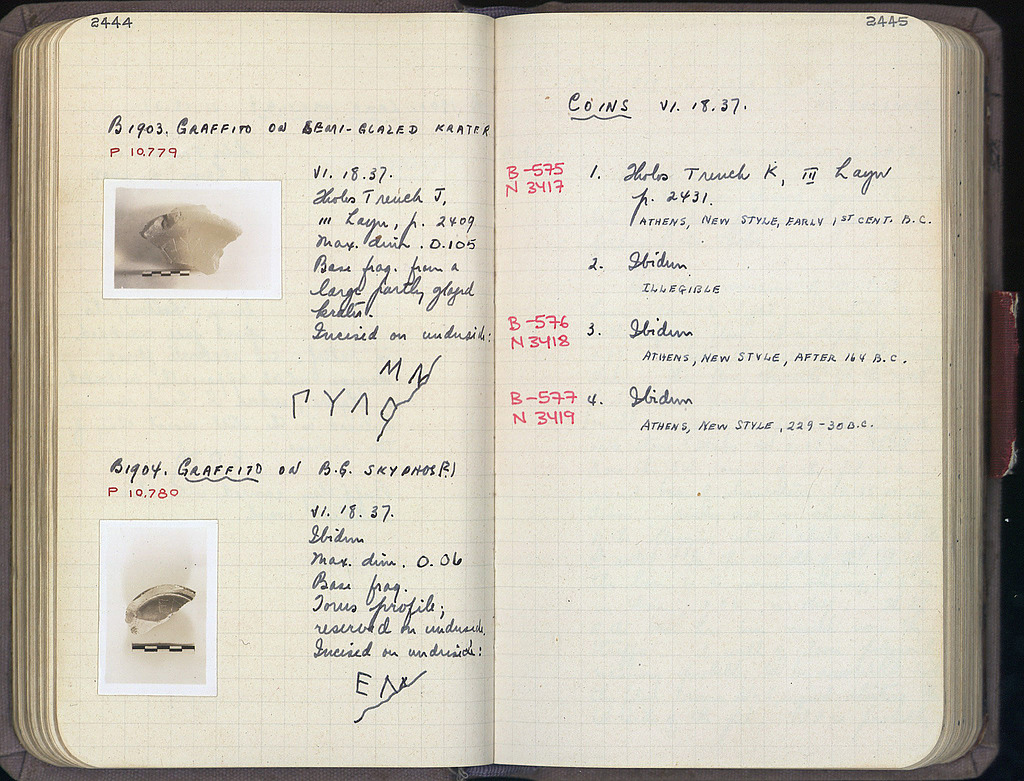 2444
B1903. GRAFFITO ON SEMI-GLAZED KRATER
P 10,779
VI. 18. 37.
Tholos Trench J,
III Layer, p. 2409
Max. dim. 0.105
Base frag. from a
large partly glazed
krater.
Incised on underside:
ΜΝ
ΓΥΛΟ
B1904. GRAFFITO ON B.G. SKYPHOS(?)
P 10,780
VI. 18. 37.
Ibidem
Max. dim. 0.06
Base frag.
Torus profile;
reserved on underside.
Incised on underside:
ΕΝ
2445
COINS VI. 18. 37.
B-575
N 3417
1. Tholos Trench K, III Layer
p. 2431.
ATHENS, NEW STYLE, EARLY 1ST CENT. B.C.
2. Ibidem
ILLEGIBLE
B-576
N 3418
3. Ibidem
ATHENS, NEW STYLE, AFTER 164 B.C.
B-577
N 3419
4. Ibidem
ATHENS, NEW STYLE, 229-30 B.C.